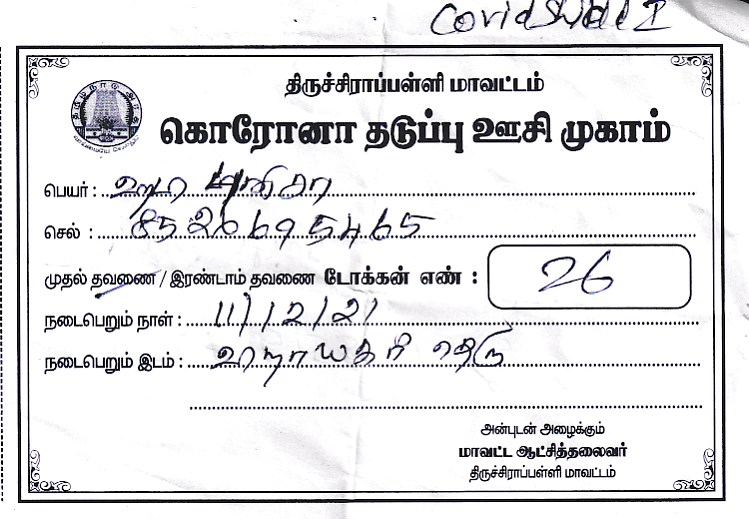 Covidshield I
திருச்சிராப்பள்ளி மாவட்டம்
கொரோனா தடுப்பு ஊசி முகாம்
பெயர் :
செல் : 8526695465
முதல் தவணை / இரண்டாம் தவணை டோக்கன் எண் : 26
நடைபெறும் நாள் : 11/12/21
நடைபெறும் இடம் : தெரு
அன்புடன் அழைக்கும்
மாவட்ட ஆட்சித்தலைவர்
திருச்சிராப்பள்ளி மாவட்டம்